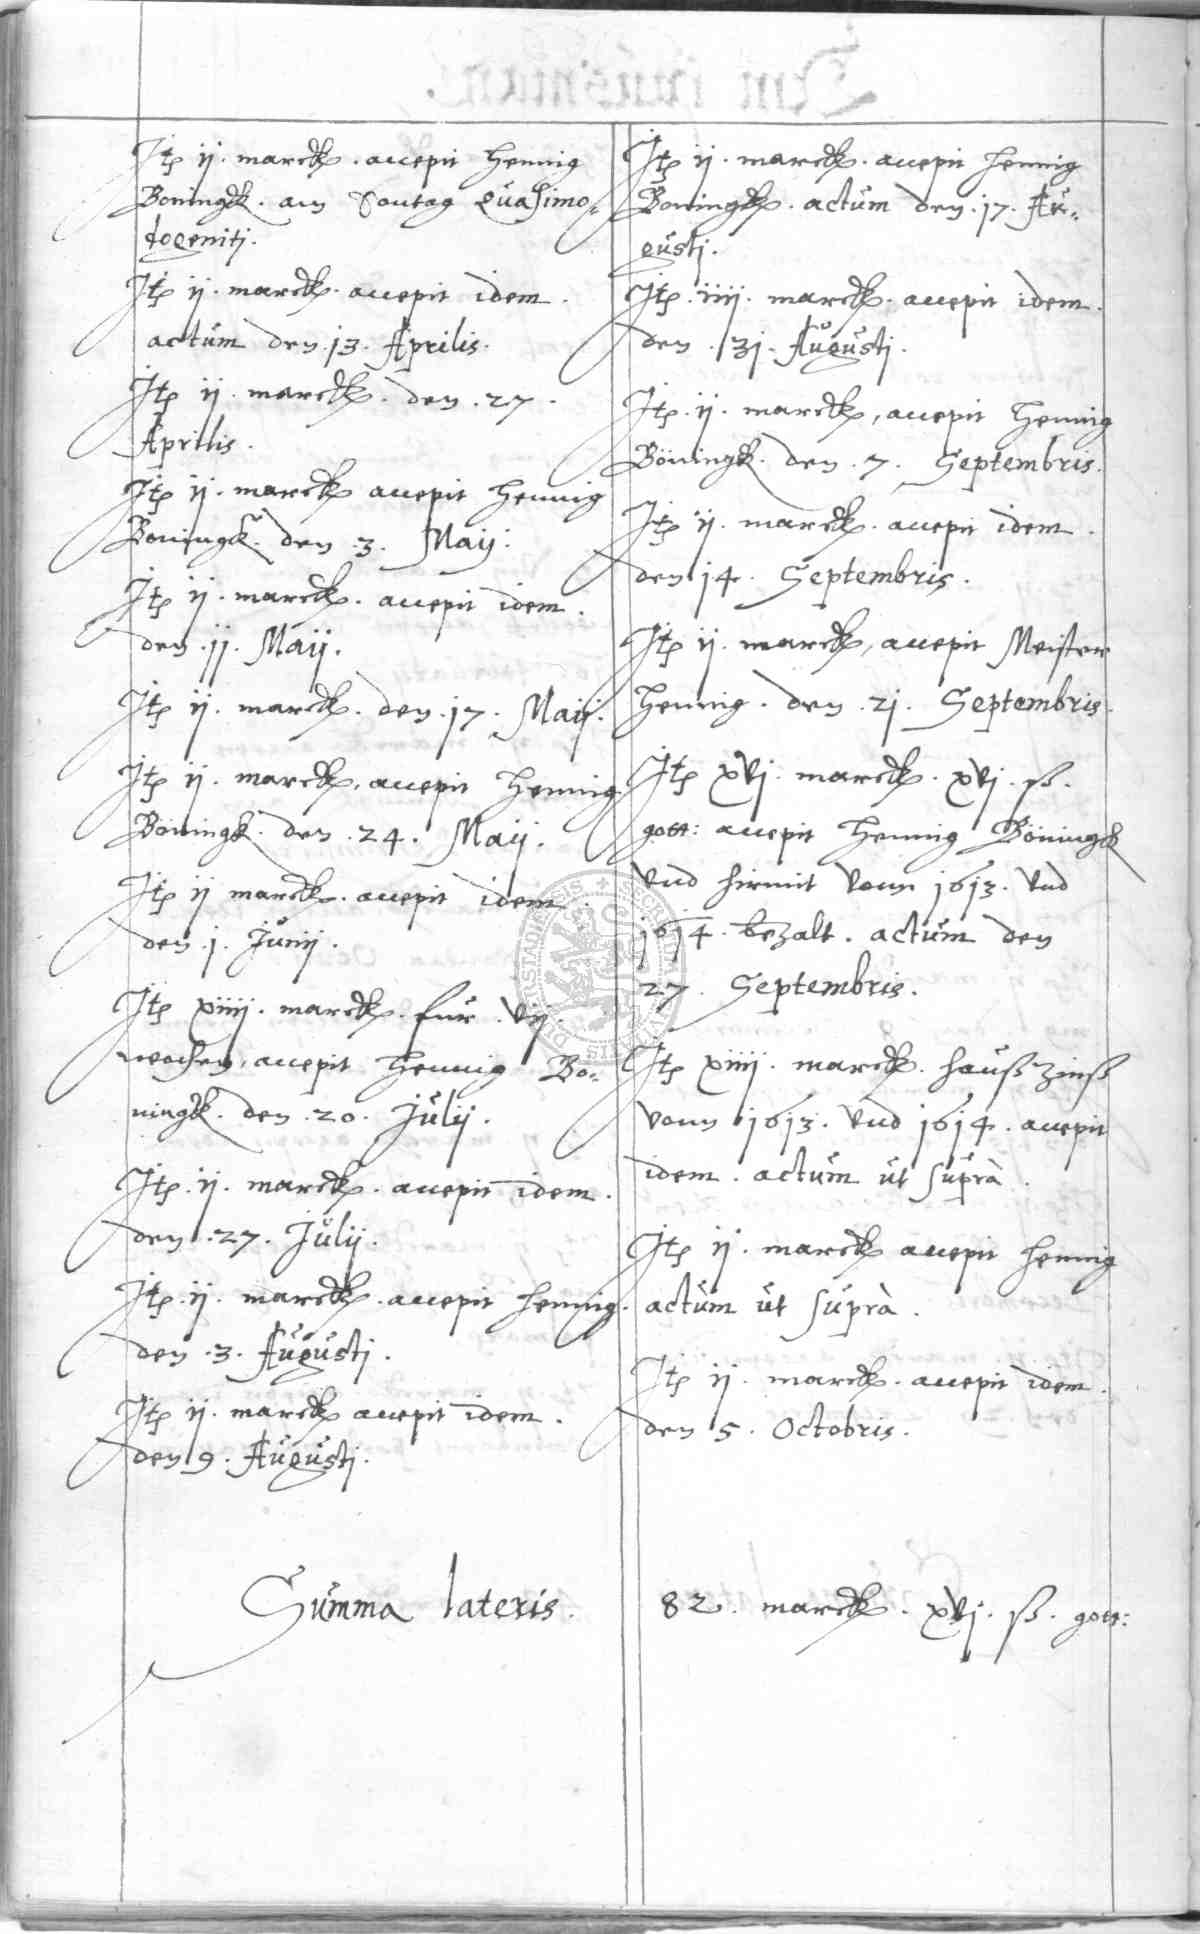 Itp ij. marck. accepit Hennig
Boningk. am Sontag Quasimo-
dogeniti.
Itp ij. marck. accepit idem.
actum den .13. Aprilis.
Itp ij. marck. den .27.
Aprilis.
Itp ij. marck accepit Hennig
Boningk. den .3. Maij.
Itp ij. marck. accepit idem.
den .11. Maij.
Itp ij. marck. den .17. Maij.
Itp ij. marck, accepit Hennig
Böningk. den .24. Maij.
Itp ij marck. accepit idem.
den .1. Junij.
Itp xiiij. marck. fur .vij.
wochen, accepit Hennig Bo-
ningk. den .20. Julij.
Itp .ij. marck. accepit idem.
den .27. Julij.
Itp .ij. marck. accepit Hennig.
den .3. Augusti.
Itp ij. marck accepit idem.
den 9. Augusti.
Itp ij. marck. accepit Hennig
Boningk. actum den .17. Au-
gusti.
Itp. iiij. marck. accepit idem.
den .31. Augusti.
Itp. ij. marck, accepit Hennig
Böningk. den .7. Septembris.
Itp ij. marck. accepit idem.
den 14. Septembris.
Itp ij. marck, accepit Meister
Hennig. den .21. Septembris.
Itp xvj. marck. xvj. ß.
gott: accepit Hennig Böningk
vnd hirmit vonn 1613. vnd
1614. bezalt. actum den
27. Septembris.
Itp xiiij. marck. haußzinß
vonn 1613. vnd 1614. accepit
idem. actum ut suprà.
Itp ij. marck accepit Hennig
actum ut suprà.
Itp ij. marck. accepit idem.
den 5. Octobris.
Summa lateris. 82. marck. xvj. ß. gott: